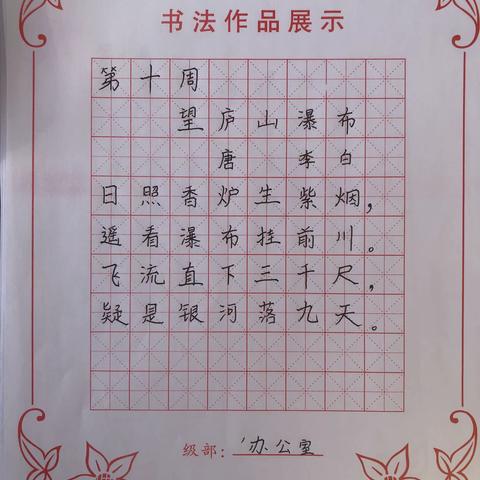 书法作品展示
第十周
望庐山瀑布
唐 李白
日照香炉生紫烟,
遥看瀑布挂前川。
飞流直下三千尺,
疑是银河落九天。
级部：办公室